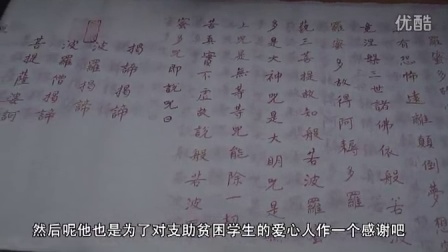 有恐怖遠離顛倒夢
竟涅槃三世諸佛依般若
羅蜜多故得阿耨多羅
藐三菩提故知般若波羅
多是大神咒是大明咒是
上咒是無等等咒能除一切
苦真實不虛故說般若波
蜜多咒即說咒曰
揭諦揭諦
波羅揭諦
波羅僧揭諦
菩提薩婆訶
然后呢他也是为了对支助贫困学生的爱心人作一个感谢吧
YOUKU